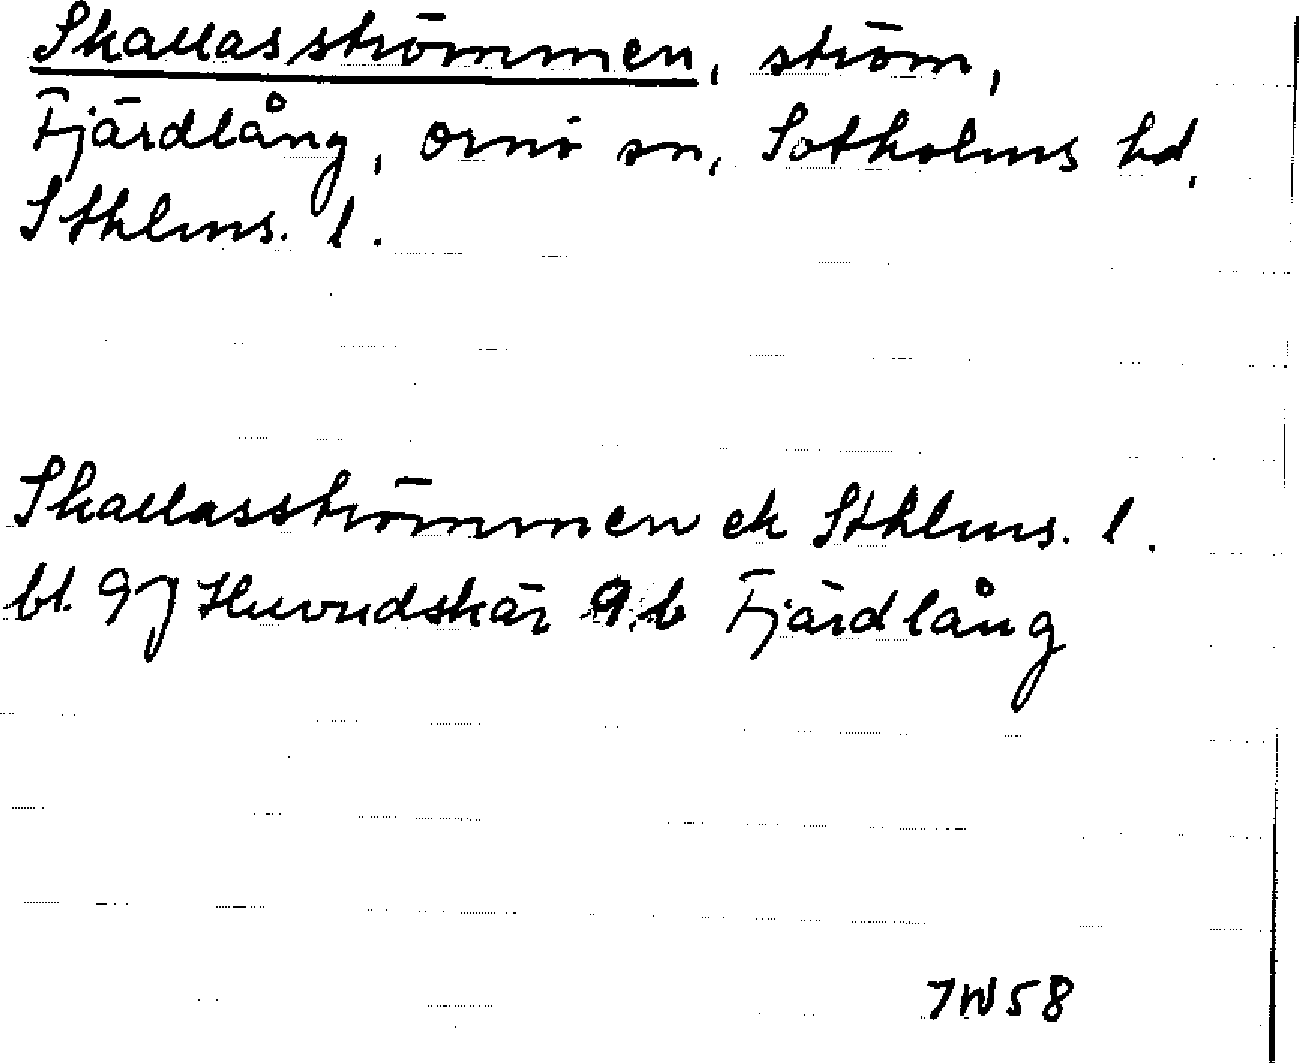 Skallasströmmen, ström,
Fjärdlång, Ornö sn, Sotholms hd,
Sthlms. l.
Skallasströmmen ek Sthlms. l.
bl. 9J Huvudskär 9 b Fjärdlång
7W58